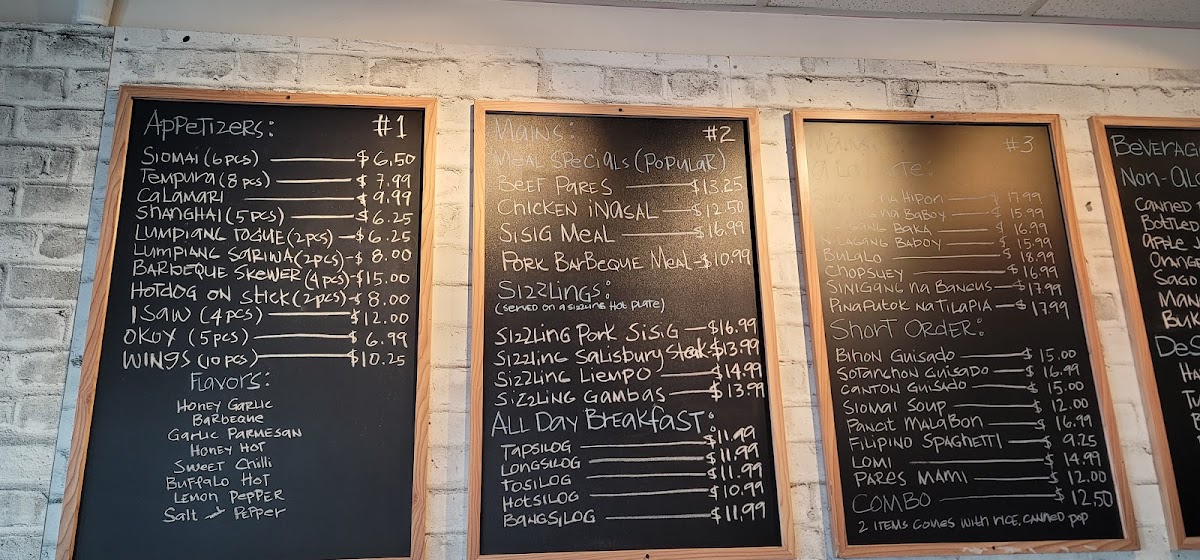 Appetizers: #1
Siomai (6pcs) $6.50
Tempura (8pcs) $7.99
Calamari $9.99
Shanghai (5pcs) $6.25
Lumpiang Togue (2pcs) $6.25
Lumpiang Sariwa (2pcs) $8.00
Barbeque Skewer (4pcs) $15.00
Hotdog on stick (2pcs) $8.00
Isaw (4pcs) $12.00
Okoy (5pcs) $6.99
Wings (10pcs) $10.25
Flavors:
Honey Garlic
Barbeque
Garlic Parmesan
Honey Hot
Sweet Chilli
Buffalo Hot
Lemon Pepper
Salt & Pepper
Mains: #2
Meal Specials (Popular)
Beef Pares $13.25
Chicken Inasal $12.50
Sisig Meal $16.99
Pork Barbeque Meal $10.99
Sizzlings:
(served on a sizzling hot plate)
Sizzling Pork Sisig $16.99
Sizzling Salisbury Steak $13.99
Sizzling Liempo $14.99
Sizzling Gambas $13.99
All Day Breakfast:
Tapsilog $11.99
Longsilog $11.99
Tosilog $11.99
Hotsilog $10.99
Bangsilog $11.99
#3
na Hipon 17.99
na Baboy $15.99
Baka $16.99
Nilagang Baboy $15.99
Bulalo $18.99
Chopsuey $16.99
Sinigang na Bangus $17.99
Pinaputok na Tilapia $17.99
Short Order:
Bihon Guisado $15.00
Sotanghon Guisado $16.99
Canton Guisado $15.00
Siomai Soup $12.00
Pancit Malabon $16.99
Filipino Spaghetti $9.25
Lomi $14.99
Pares Mami $12.00
Combo $12.50
2 items comes with rice, canned pop
Beverag
Non-Alc
Canned
Bottled
Apple
Orang
Sago
Man
Buk
Des
Ha